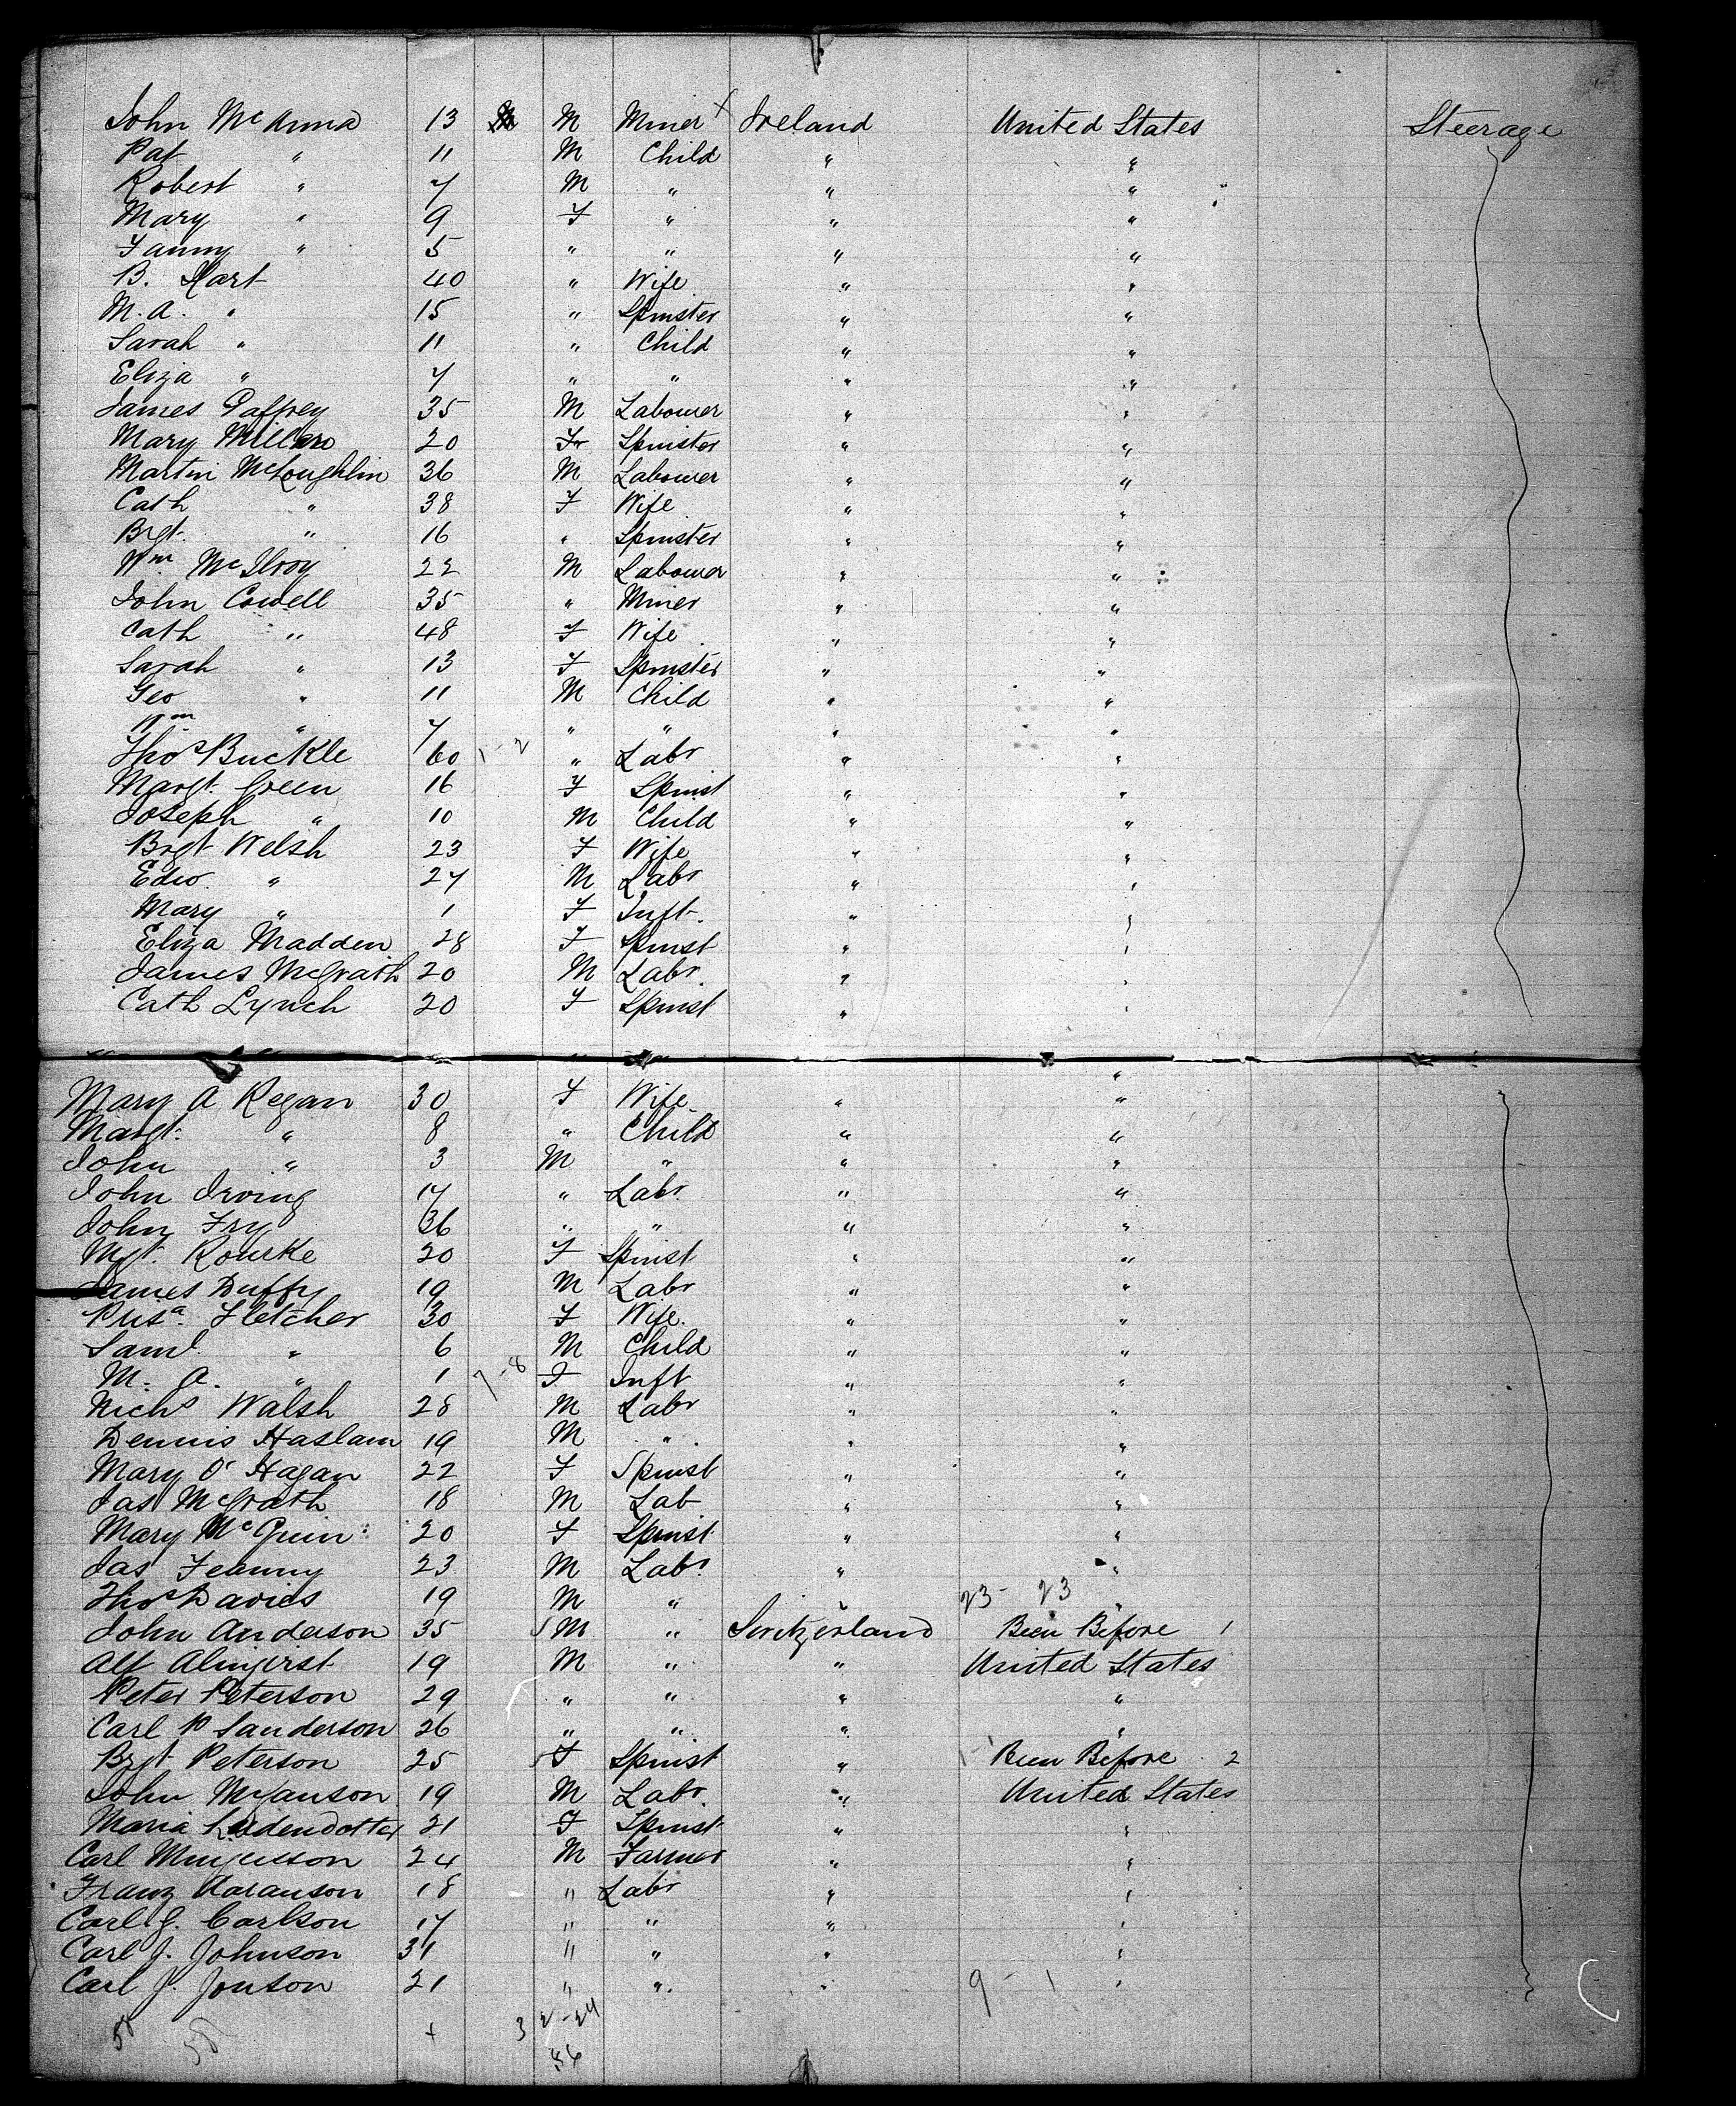 John McAnna 13 M Miner Ireland United States Steerage
Pat " 11 M Child " "
Robert " 7 M " " "
Mary " 9 F " " "
Fanny " 5 " " " "
B. Hart 40 " Wife " "
M. A. " 15 " Spinster " "
Sarah " 11 " Child " "
Eliza " 7 " " " "
James 35 M Labourer " "
Mary 20 F Spinster " "
Martin McLoughlin 36 M Labourer " "
Cath " 38 F Wife " "
Brgt. " 16 " Spinster " "
Wm McIlroy 22 M Labourer " "
John Cowell 35 " Miner " "
Cath " 48 F Wife " "
Sarah " 13 F Spinster " "
Geo " 11 M Child " "
Wm " 7 " " " "
Thos Buckle 60 1 - 2 " Labr " "
Margt. Green 16 F Spinst " "
Joseph " 10 M Child " "
Brgt Welsh 23 F Wife " "
Edw. " 27 M Labr " "
Mary " 1 F Inft. " "
Eliza Madden 28 F Spinst " "
James McGrath 20 M Labr. " "
Cath Lynch 20 F Spinst " "
Mary A Regan 30 F Wife " "
Margt. " 8 " Child " "
John " 3 M " " "
John Irving 17 " Labr. " "
John Fry 36 " " " "
Mgt. Rourke 20 F Spinst " "
James Duffy 19 M Labr " "
Fletcher 30 F Wife. " "
Saml. " 6 M Child " "
M. A. " 1 7 - 8 F Inft " "
Nichs Walsh 28 M Labr " "
Dennis Haslam 19 M " " "
Mary O'Hagan 22 F Spinst " "
Jas McGrath 18 M Lab " "
Mary McGuin 20 F Spinst " "
Jas Feanny 23 M Labr. " "
Thos Davies 19 M " " 23 - 23 "
John Anderson 35 M " Switzerland Been Before 1
Alf 19 M " " United States
Peter Peterson 29 " " " "
Carl P Sanderson 26 " " " "
Brgt Peterson 25 F Spinst " Been Before 2
John 19 M Labr. " United States
Maria 21 F Spinst " "
Carl 24 M Farmer " "
Franz 18 " Labr " "
Carl G. Carlson 17 " " " "
Carl J. Johnson 31 " " " "
Carl J. Jonson 21 " " " 9 - 1 "
58 58 + 3 2 - 24
56